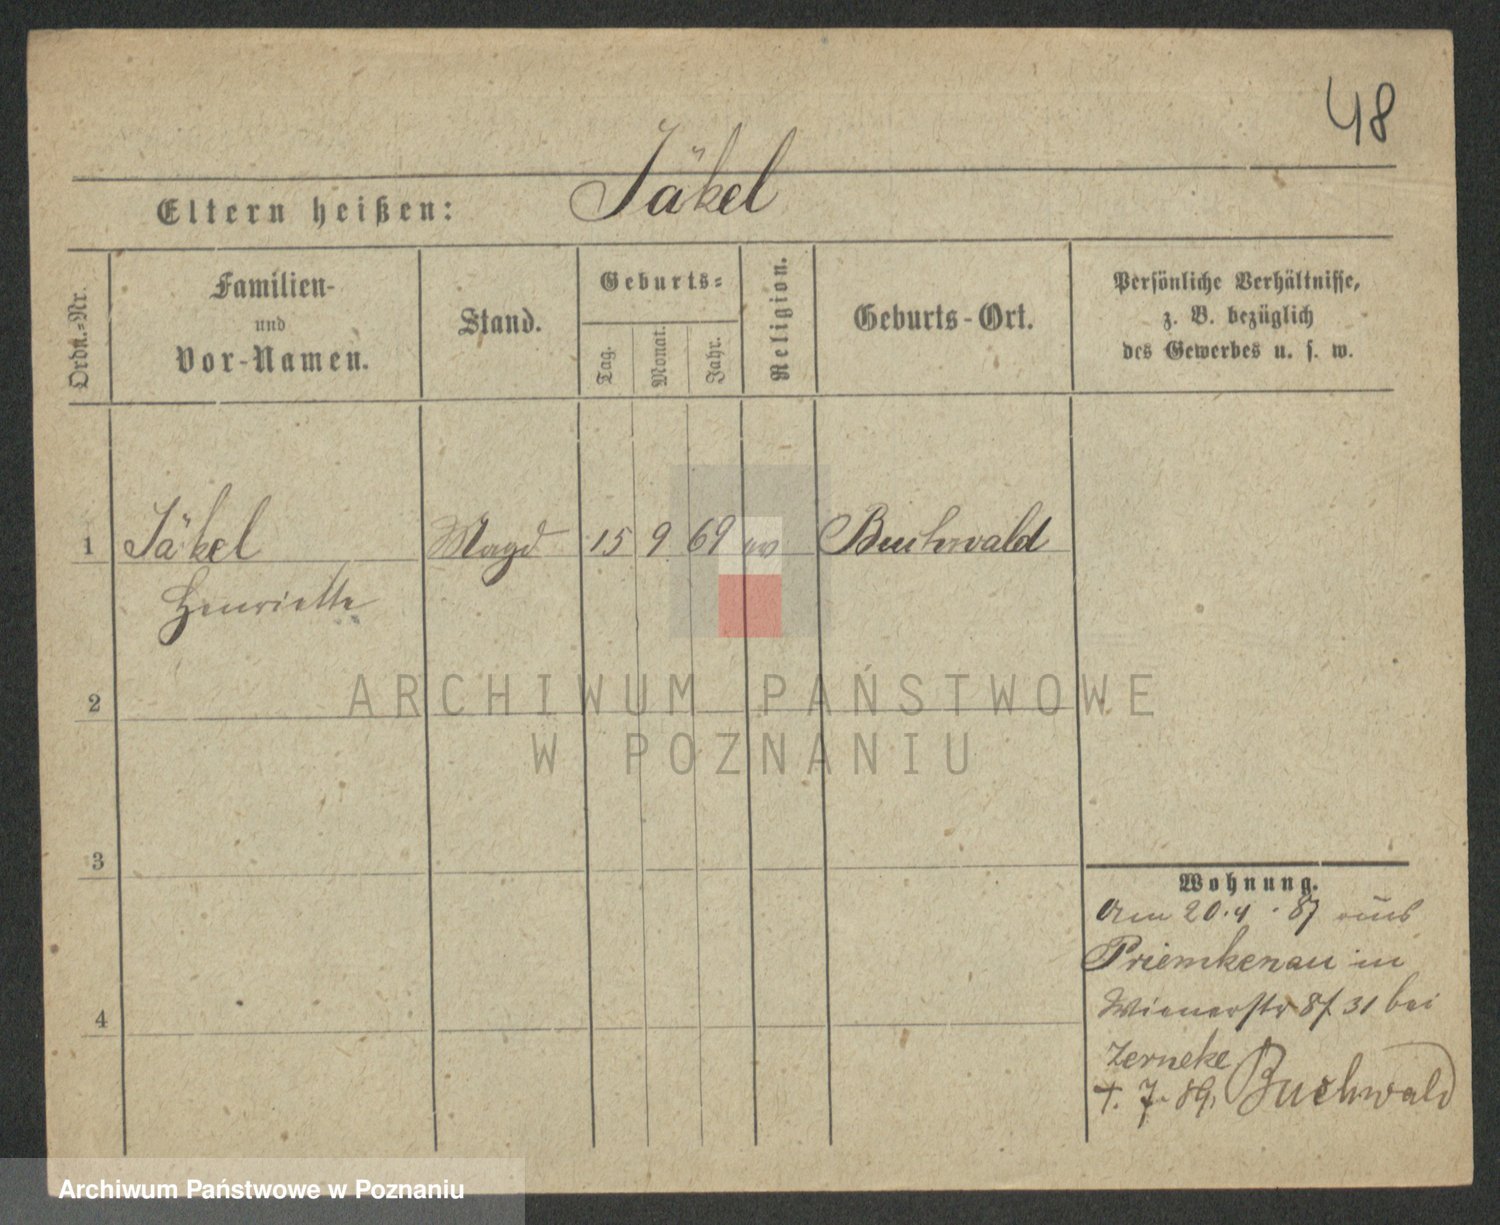 48
Eltern heißen: Jäkel
Ordn.-Nr.
Familien-
und
Vor-Namen.
Stand.
Geburts-
Tag.
Monat.
Jahr.
Religion.
Geburts-Ort.
Persönliche Verhältnisse,
z. B. bezüglich
des Gewerbes u. s. w.
1 Jäkel Magd 15 9 69 ev Buchwald
Henriette
2
ARCHIWUM PAŃSTWOWE
W POZNANIU
3
4
Wohnung.
Am 20.4.87 aus
Priemkenau in
Wienerstr 8/31 bei
Zerneke
7. 89. Buchwald
Archiwum Państwowe w Poznaniu